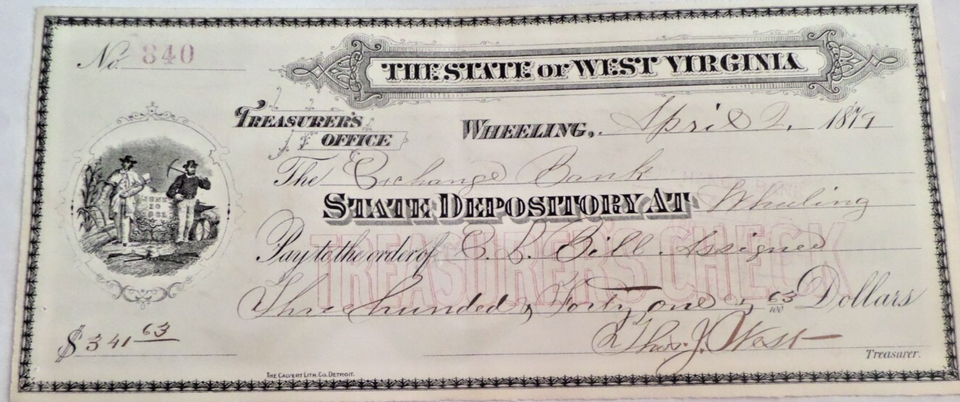 No. 840
THE STATE OF WEST VIRGINIA
TREASURER'S OFFICE
WHEELING, April 2, 1879
The Exchange Bank
STATE DEPOSITORY AT Wheeling
Pay to the order of C. L. Bill Assignee
TREASURER'S CHECK
Three hundred & Forty one & 63/100 Dollars
$341 63
Thos. J. West
Treasurer.
THE CALVERT LITH. CO. DETROIT.